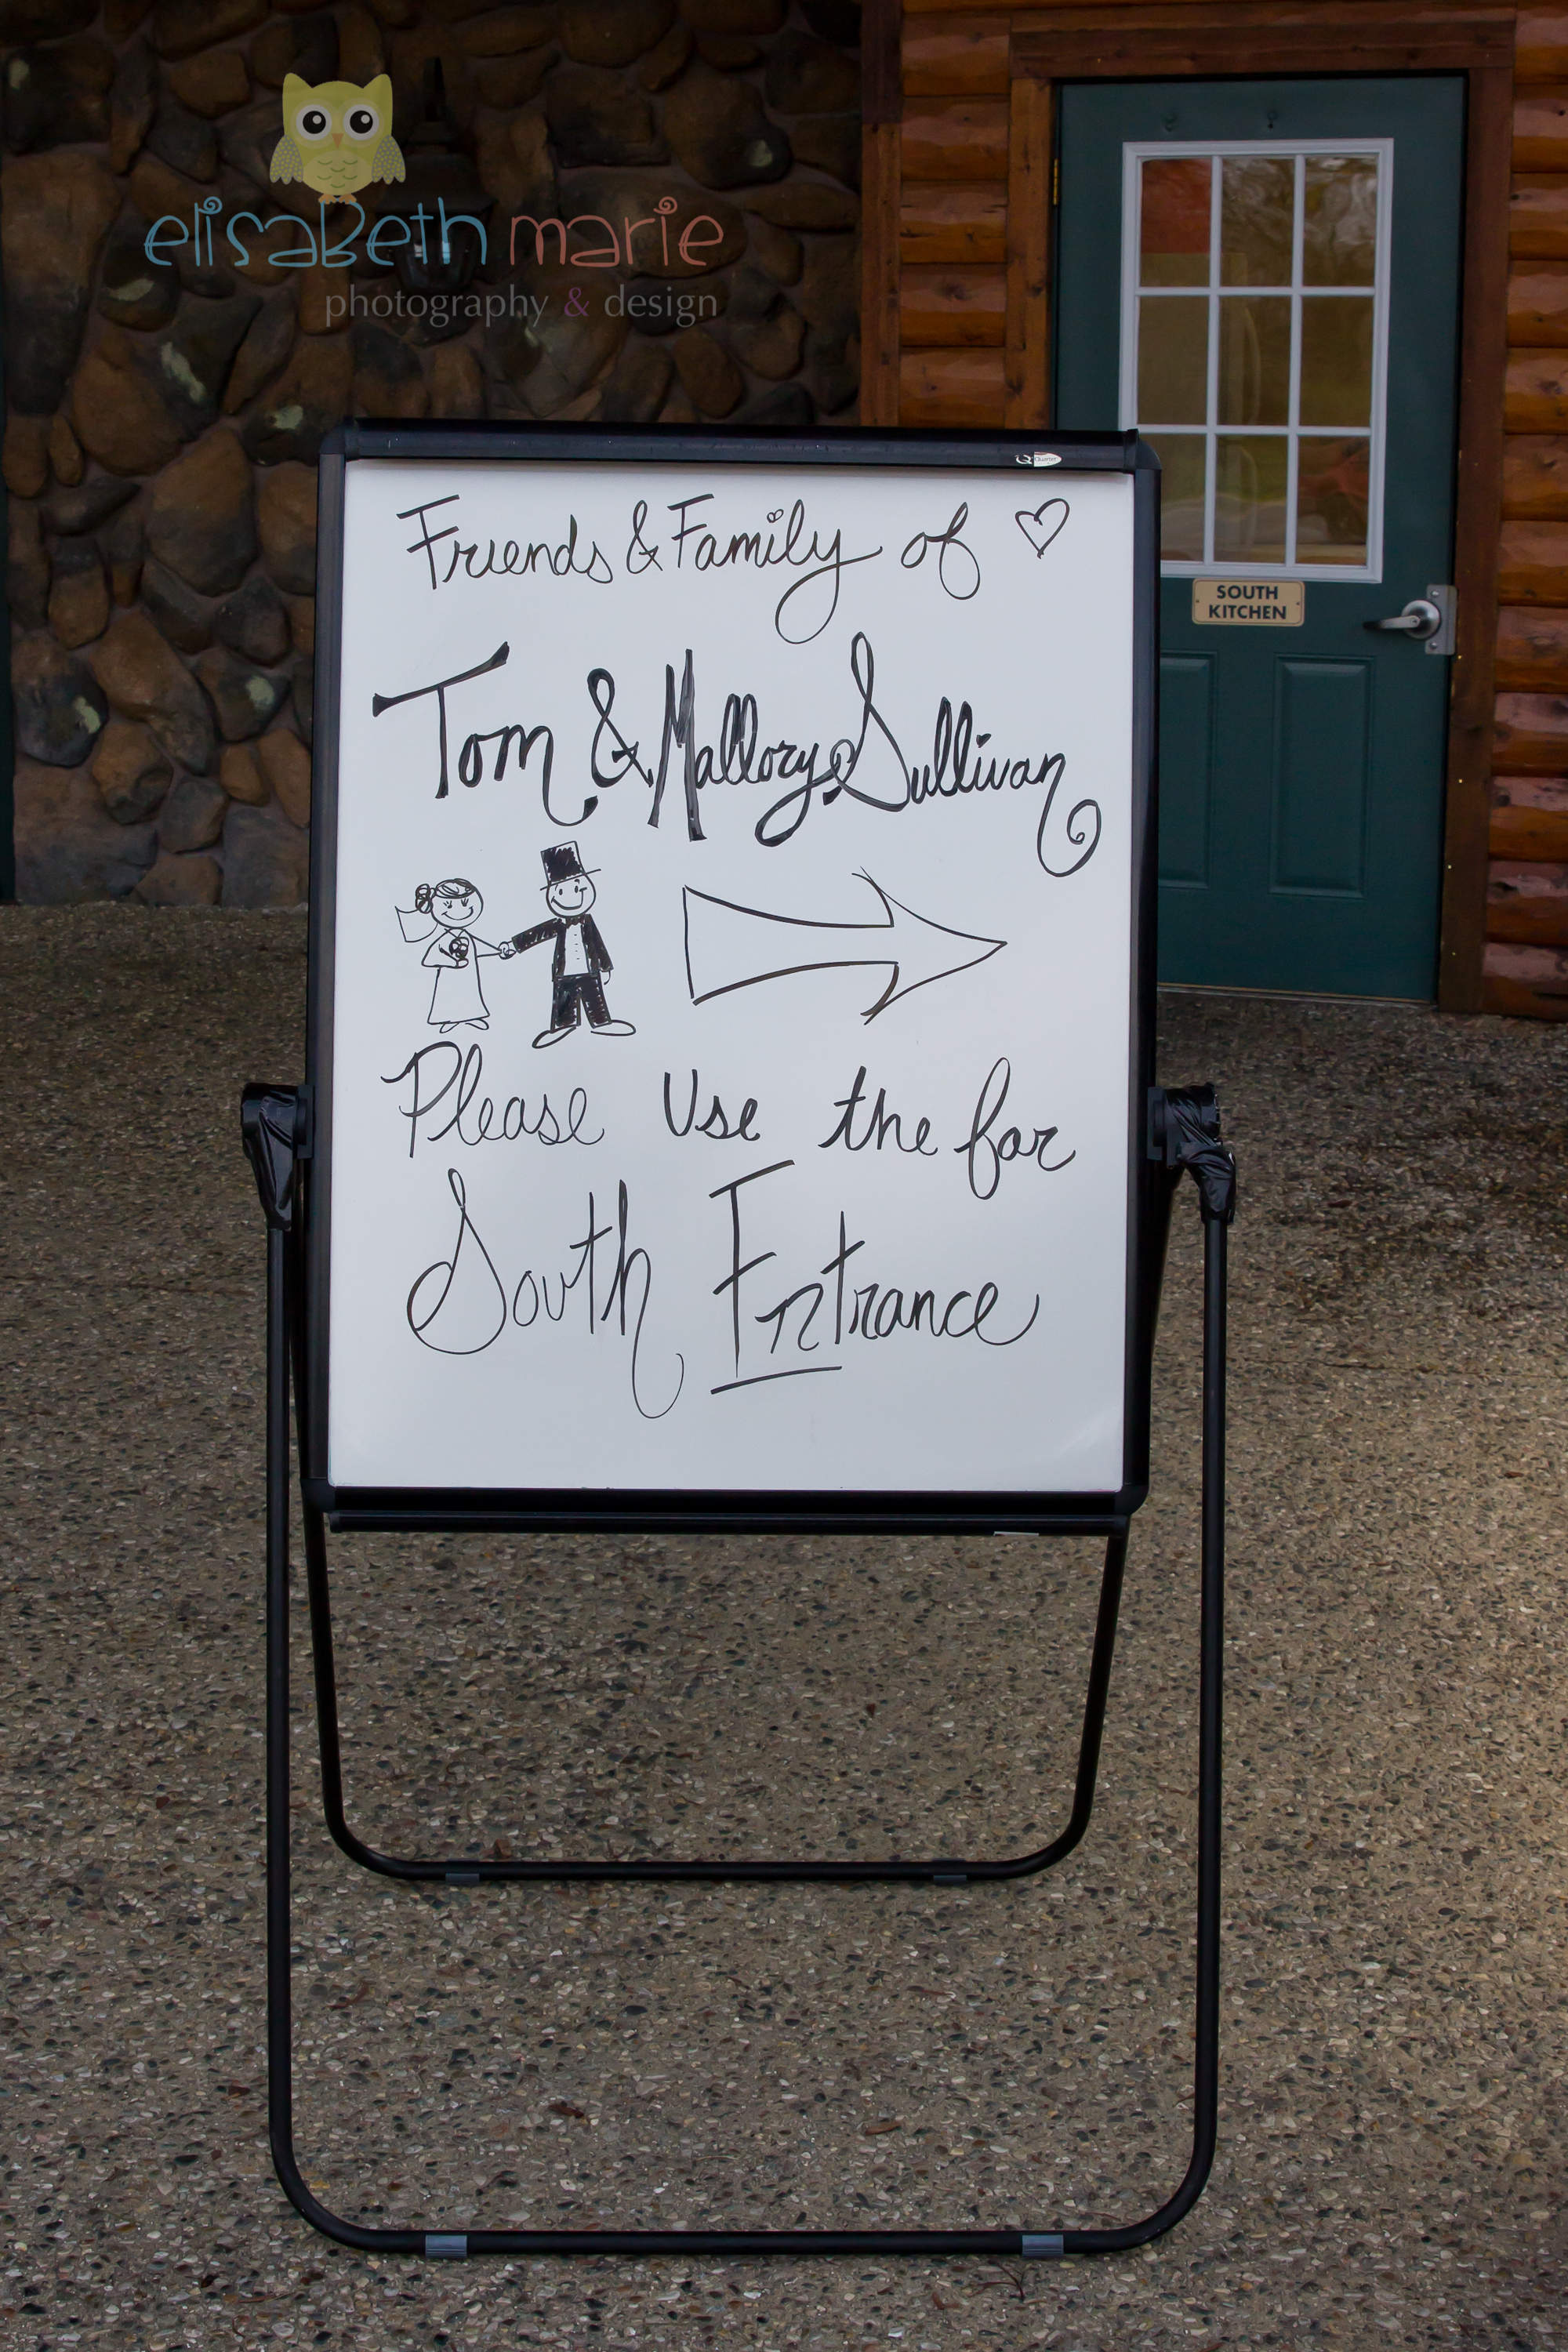 elisabeth marie
photography & design
Quartet
Friends & Family of
Tom & Mallory Sullivan
SOUTH
KITCHEN
Please Use the far
South Entrance